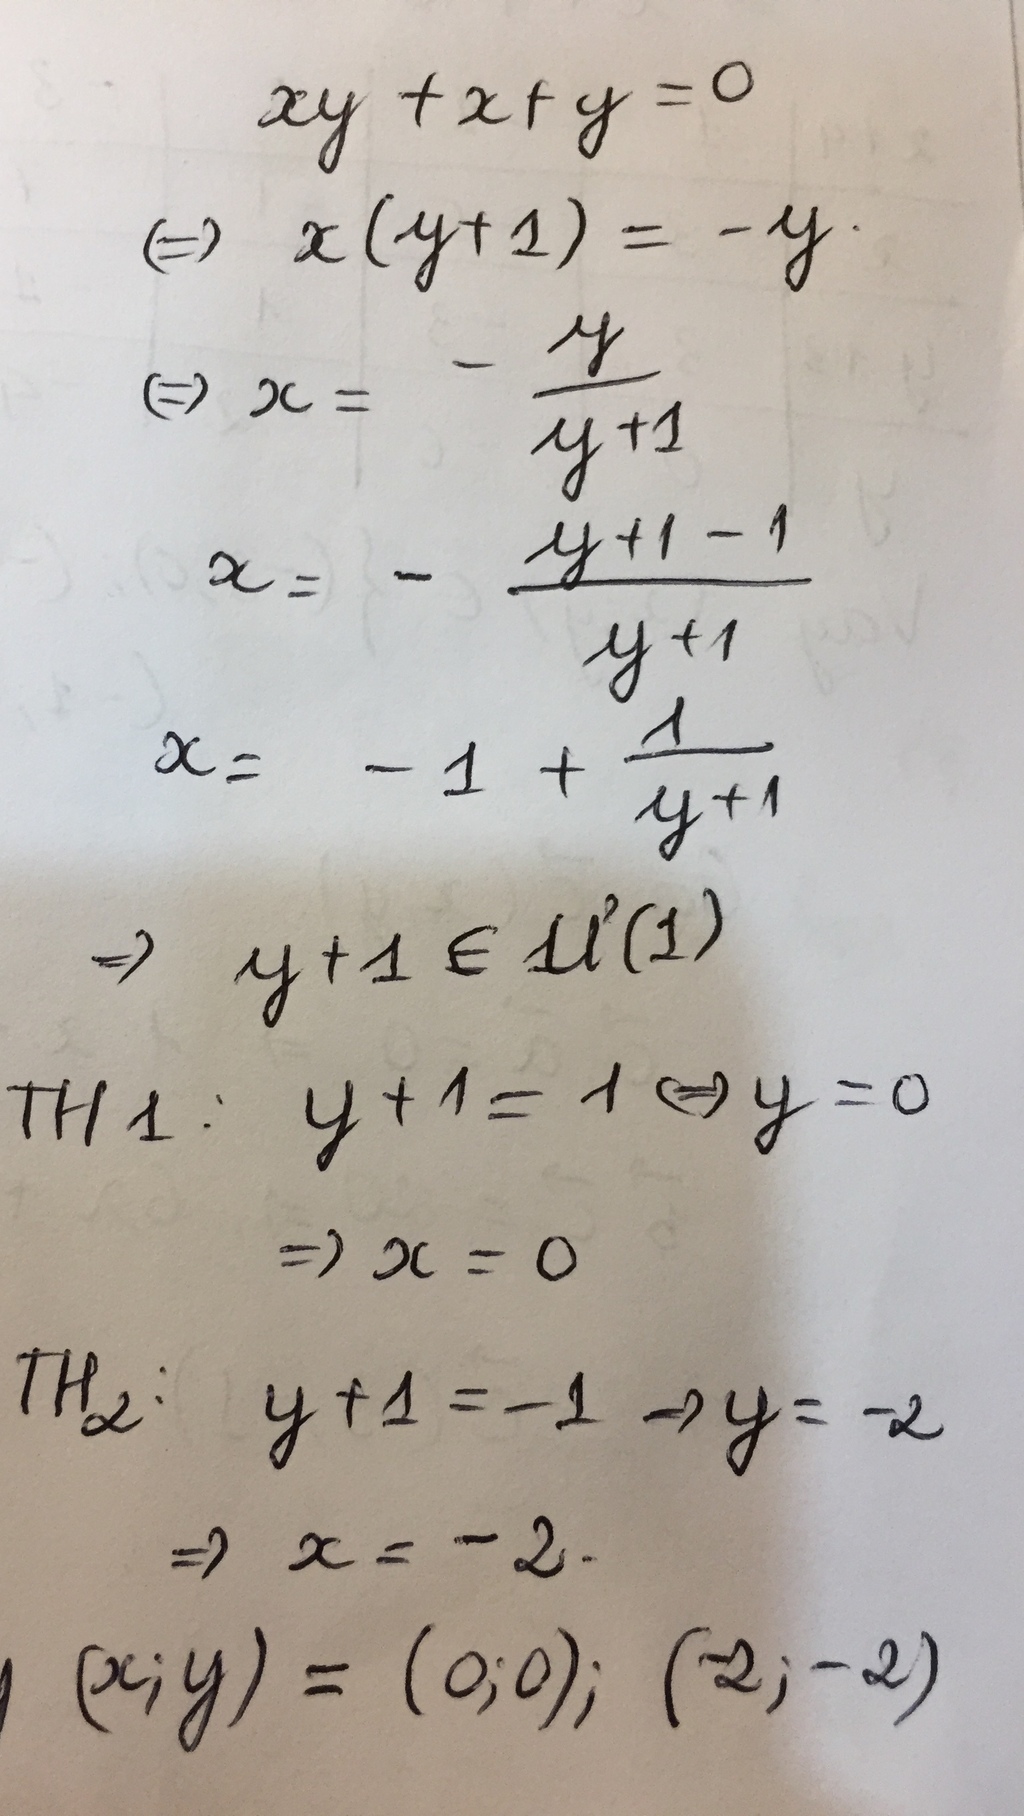 xy + x + y = 0
(=) x(y+1) = -y.
(=) x = - y/(y+1)
x = - (y+1-1)/(y+1)
x = -1 + 1/(y+1)
=) y+1 ∈ Ư(1)
TH1: y+1 = 1 (=) y = 0
=) x = 0
TH2: y+1 = -1 =) y = -2
=) x = -2.
(x;y) = (0;0); (-2;-2)